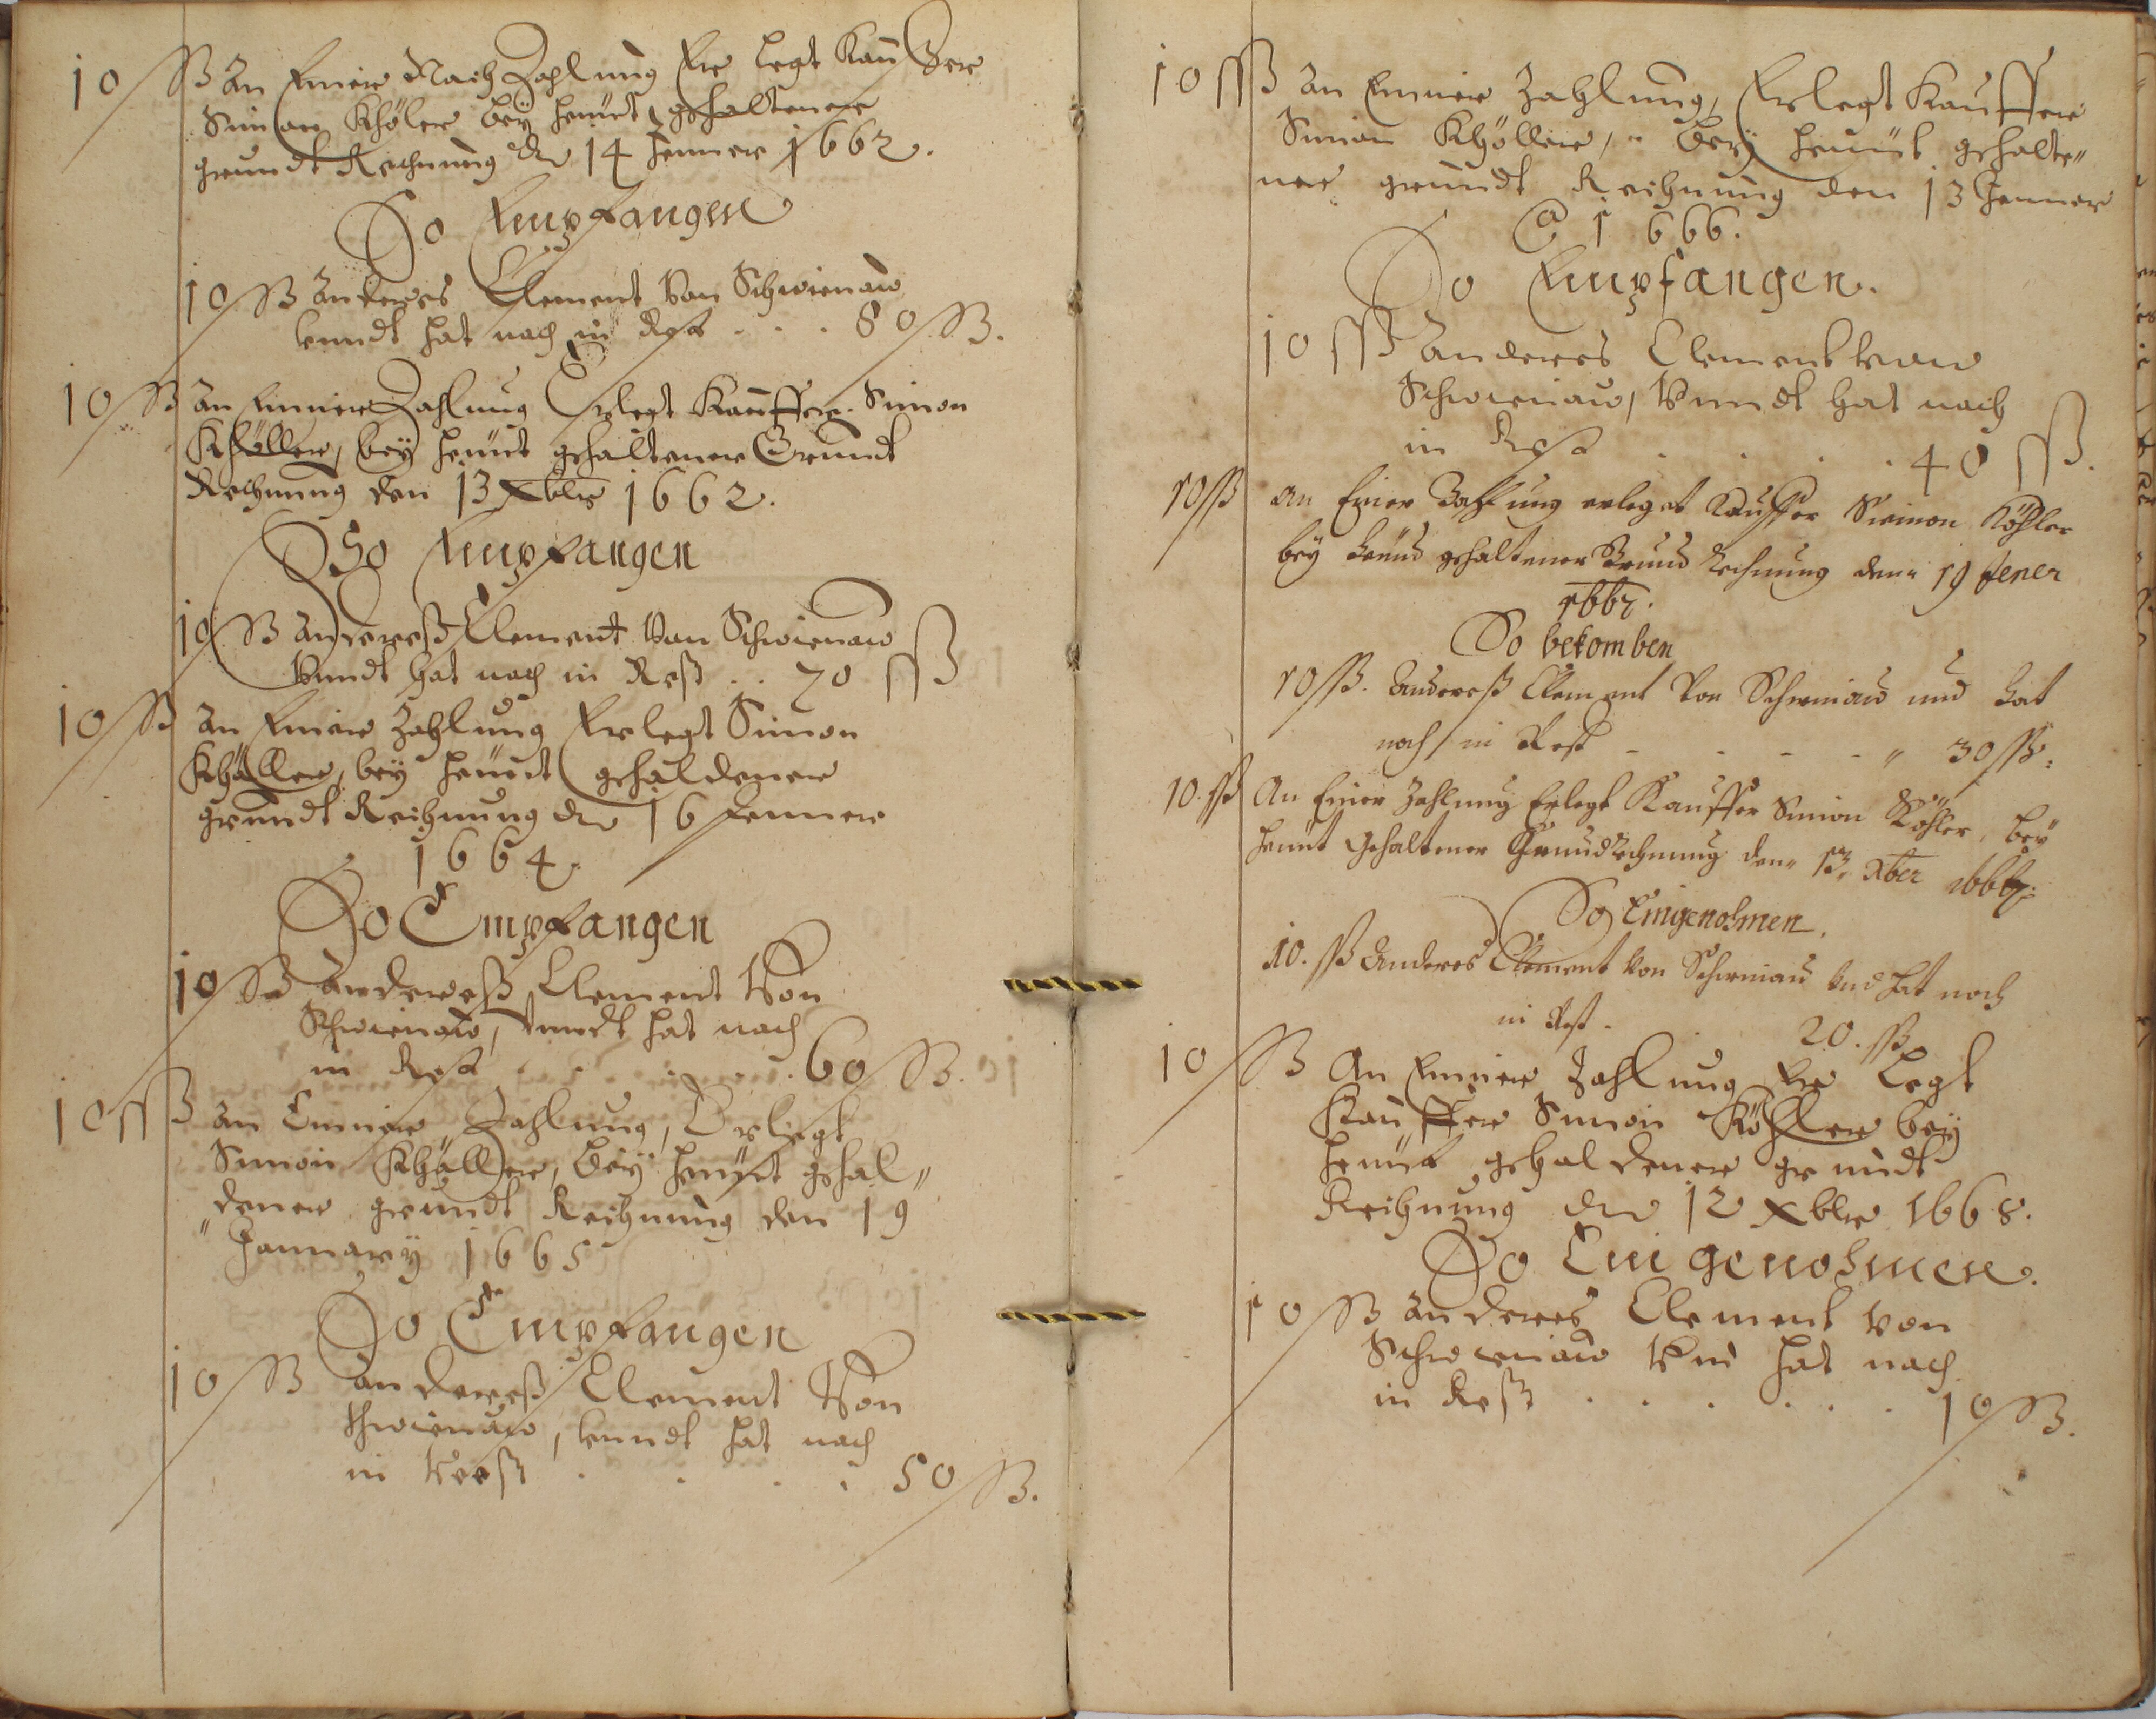 10 ß An Einer Nach Zahlung Er Legt Kauffer
Simon Khöler bey heüdt gehaltener
grundt Rechnung den 14 Jenner 1662.
So Empfangen
10 ß Anderes Clement Von Schwienaw
vnndt hat noch in Rest . . . 80 ß.
10 ß An Einner Zahlung Erlegt Kauffer Simon
Khöller, bey heüdt gehaltener Grundt
Rechnung den 13 Xbler 1662.
So Empfangen
10 ß Andereß Clement Von Schwienaw
Vnndt hat noch in Rest . . 70 ß
10 ß An Einer Zahlung Erlegt Simon
Khäller, bey heündt gehaldener
grundt Reihnung den 16 Jenner
1664.
So Empfangen
10 ß Andereß Clement Von
Schwienaw, vnndt hat noch
in Rest . . . . . 60 ß.
10 ß An Einner Zahlung, Erliegt
Simon Khäller, bey heüdt gehal„
dener grundt Reihnung den 19
January 1665
So Empfangen
10 ß Andereß Clement Von
Schwienaw, vnndt hat noch
in Reest . . . . 50 ß.
10 ß An Einner Zahlung, Erlegt Kauffer
Simon Khöller, bey heündt gehalte„
ner grundt Reihnung den 13 Jenner
@ 1666.
So Empfangen.
10 ß Anderes Clement von
Schwienaw, Vnndt hat noch
in Rest . . . . 40 ß.
10 ß An Einer Zahlung erleget Kauffer Simon Köhler
bey heünd gehaltener Grund Rechnung denn 19 Jener
1667.
So bekomben
10 ß. Andereß Clement Von Schweniaw und hat
noch in Rest - - - - „ 30 ß.
10. ß An Einer Zahlung Erlegt Kauffer Simon Köhler, bey
heünt Gehaltener Grundrechnung den„ 13„ Xber 1667.
So Eingenohmen.
10. ß Anderes Clement Von Schweniau Vnd hat noch
in Rest . 20. ß
10 ß An Einner Zahlung Er Legt
Kauffer Simon Köhler bey
heünt gehaldener grundt
Reihnung den 12 Xbler 1668.
So Ein genohmen.
10 ß Anderes Clement von
Schwieniaw Vnd hat noch
in Rest . . . . . . 10 ß.